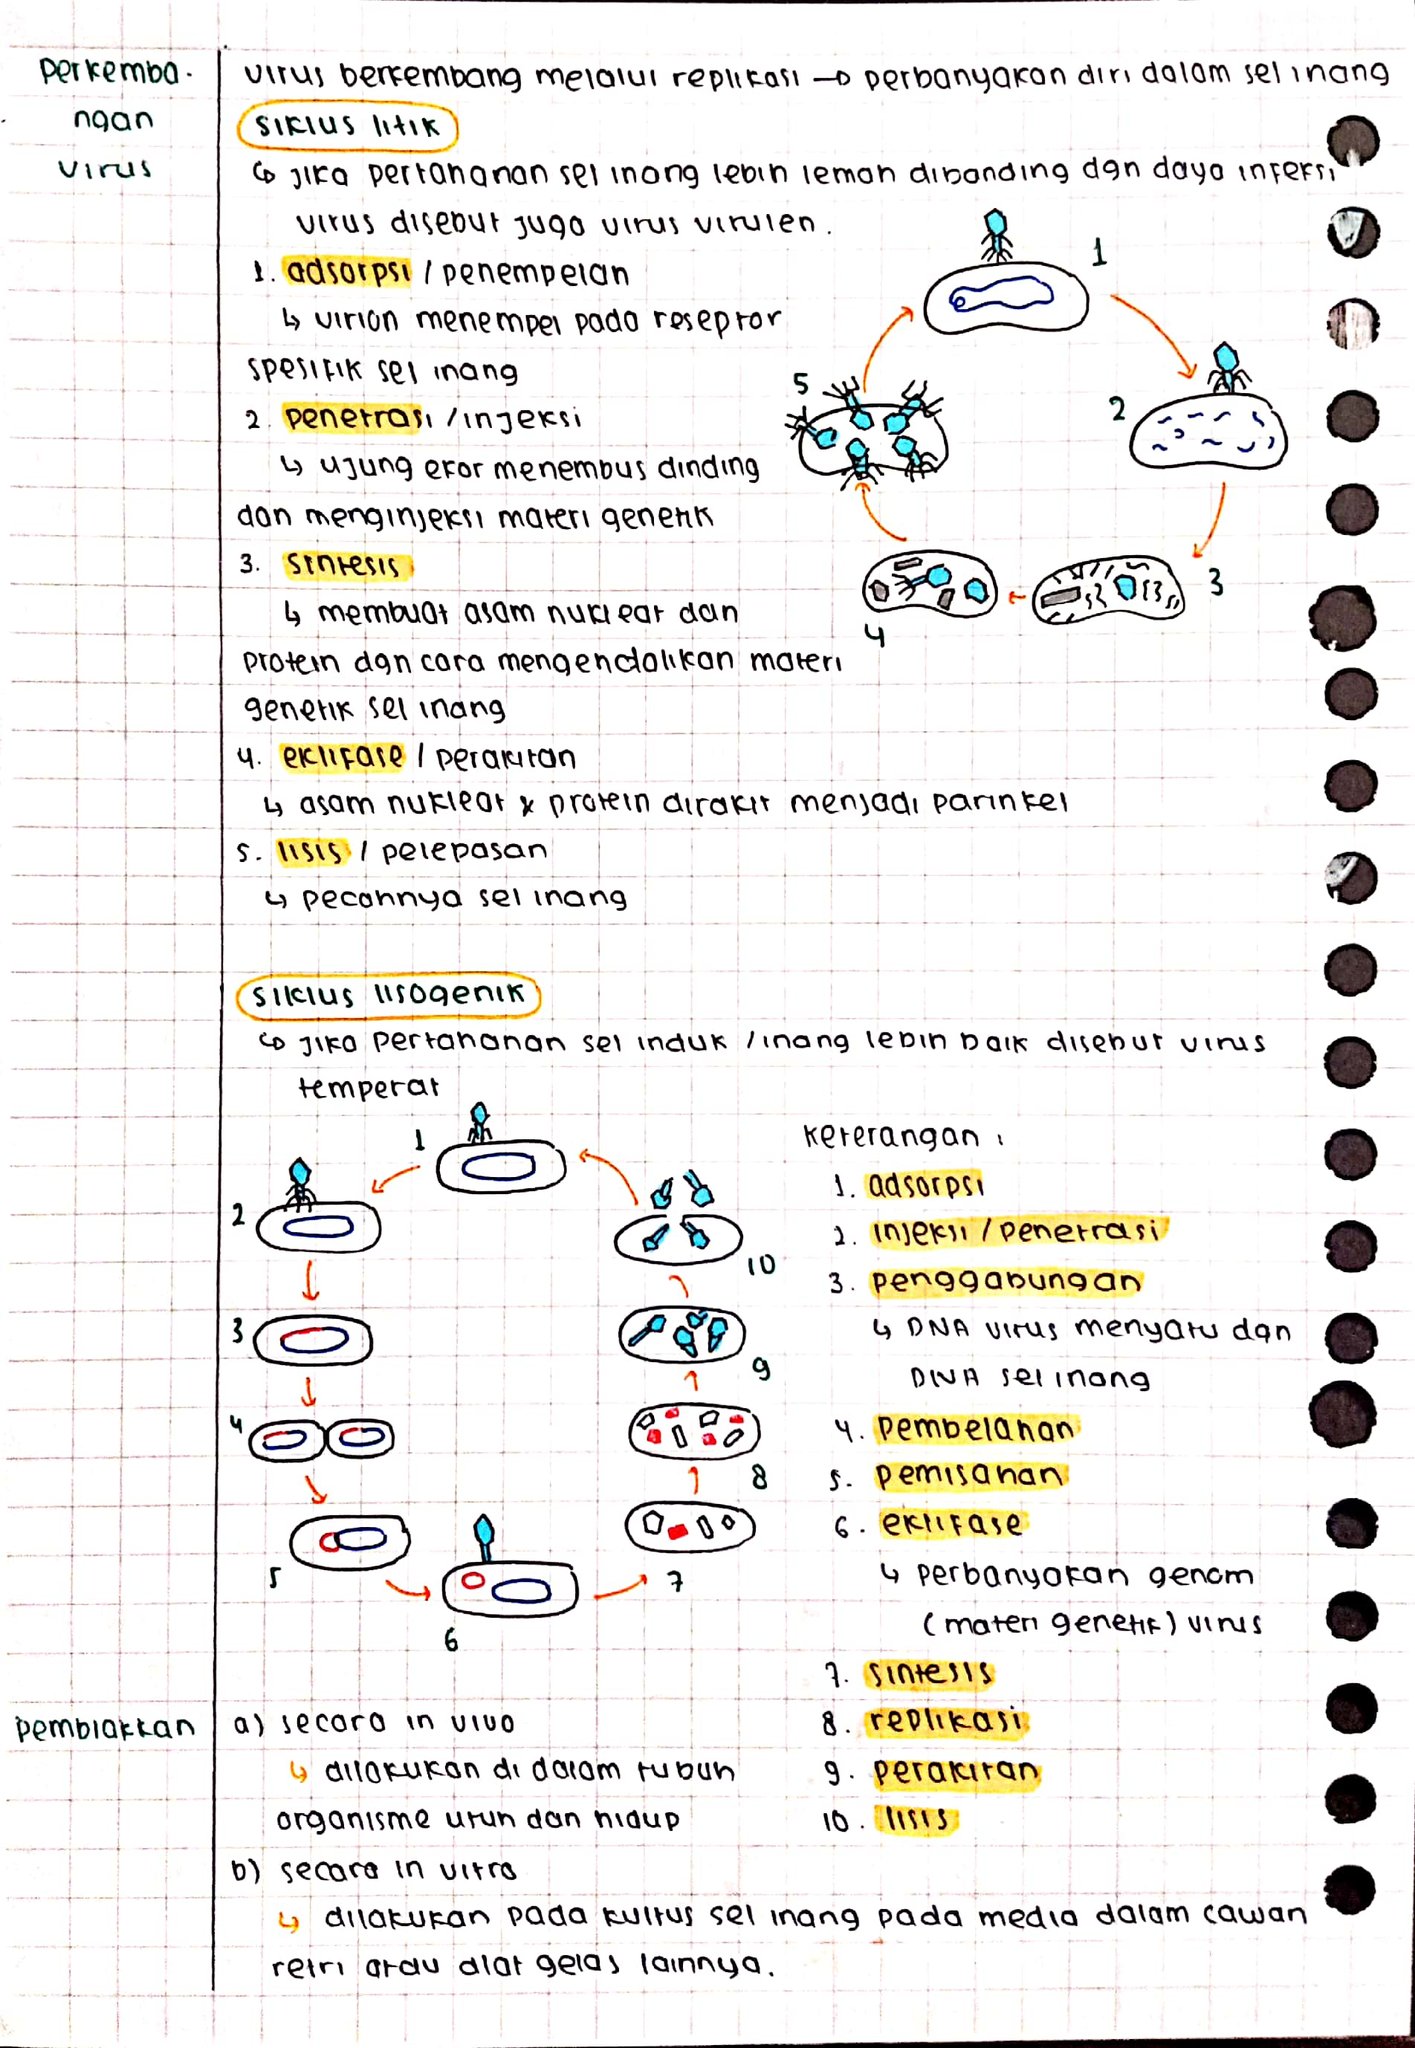 perkemba-
ngan
virus
virus berkembang melalui replikasi → perbanyakan diri dalam sel inang
siklus litik
↳ jika pertahanan sel inang lebih lemah dibanding dgn daya infeksi
virus disebut juga virus virulen.
1. adsorpsi / penempelan
↳ virion menempel pada reseptor
spesifik sel inang
2. penetrasi / injeksi
↳ ujung ekor menembus dinding
dan menginjeksi materi genetik
3. sintesis
↳ membuat asam nukleat dan
protein dgn cara mengendalikan materi
genetik sel inang
4. eklifase / perakitan
↳ asam nukleat & protein dirakit menjadi partikel
5. lisis / pelepasan
↳ pecahnya sel inang
1
2
3
4
5
siklus lisogenik
↳ jika pertahanan sel induk / inang lebih baik disebut virus
temperat
1
2
3
4
5
6
7
8
9
10
keterangan :
1. adsorpsi
2. injeksi / penetrasi
3. penggabungan
↳ DNA virus menyatu dgn
DNA sel inang
4. pembelahan
5. pemisahan
6. eklifase
↳ perbanyakan genom
(materi genetik) virus
7. sintesis
8. replikasi
9. perakitan
10. lisis
pembiakkan
a) secara in vivo
↳ dilakukan di dalam tubuh
organisme utuh dan hidup
b) secara in vitro
↳ dilakukan pada kultus sel inang pada media dalam cawan
retri atau alat gelas lainnya.